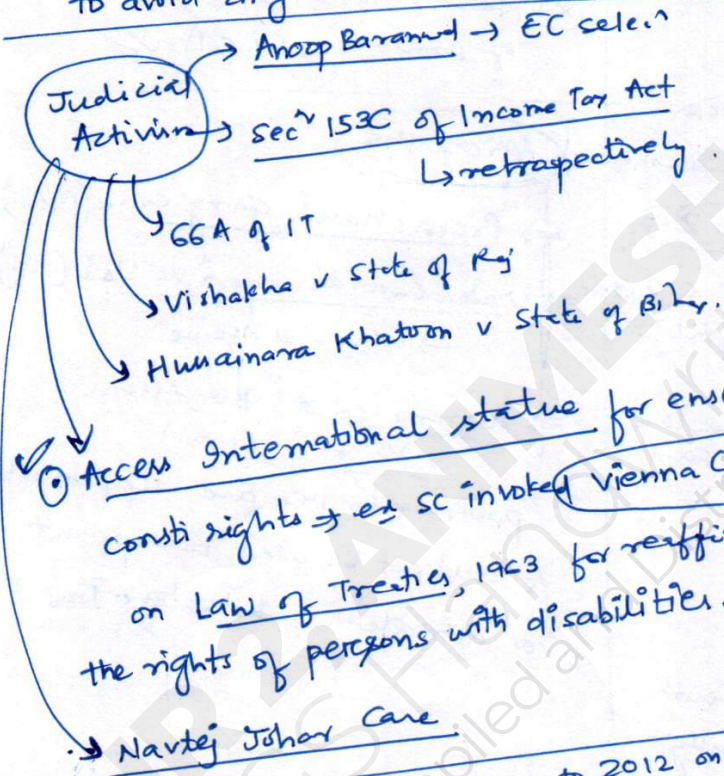 to avoid any
Anoop Baranwal → EC selecn
Judicial
Activism → secn 153C of Income Tax Act
↳ retrospectively.
66A of IT
Vishakha v State of Raj
Hussainara Khatoon v State of Bihar.
Access International statue for ens
consti rights → ex SC invoked Vienna C
on Law of Treaties, 1963 for reaffi
the rights of persons with disabilities.
Navtej Johar Case
2012 on
ANIMESH